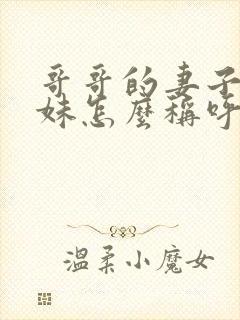 哥哥的妻子
妹怎麼稱呼
溫柔小魔女